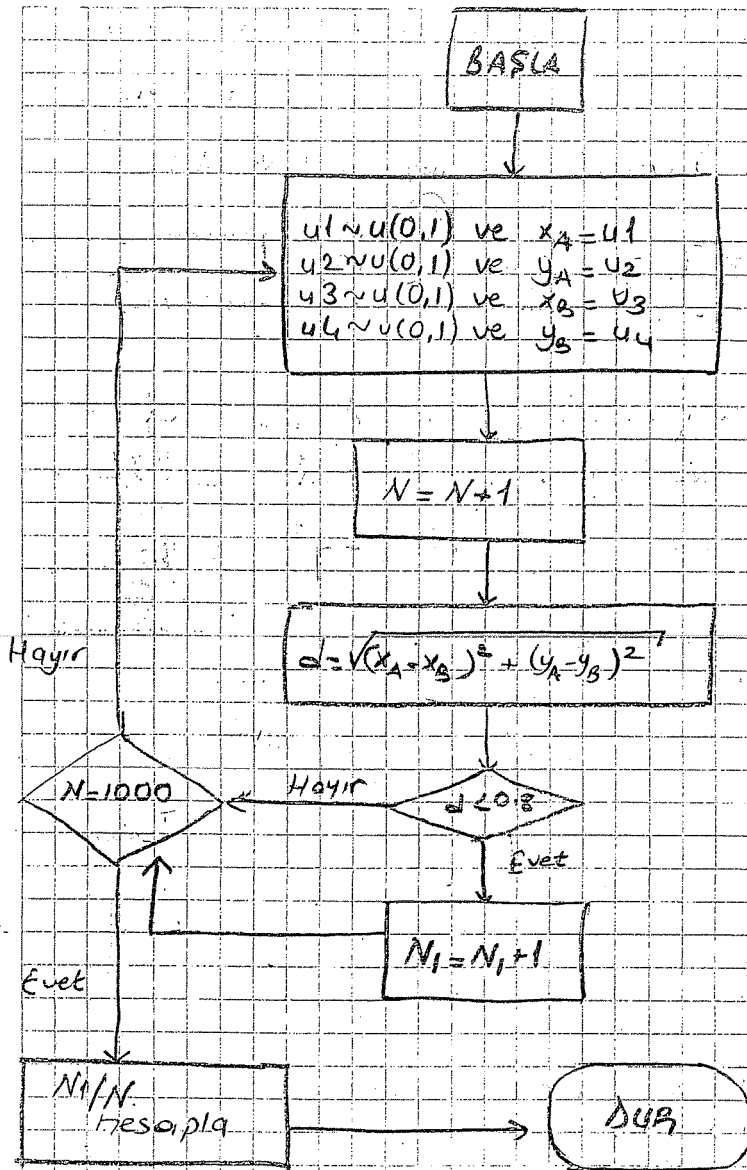 BAŞLA
u1~u(0,1) ve x_A = u1
u2~u(0,1) ve y_A = u2
u3~u(0,1) ve x_B = u3
u4~u(0,1) ve y_B = u4
N = N+1
d = √(x_A - x_B)² + (y_A - y_B)²
Hayır
N=1000
Hayır
d<0.8
Evet
N₁ = N₁+1
Evet
N1/N
hesapla
DUR